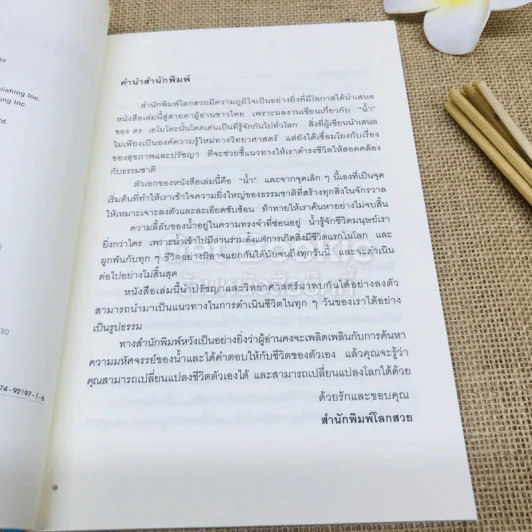 คำนำสำนักพิมพ์
สำนักพิมพ์โลกสวยมีความภูมิใจเป็นอย่างยิ่งที่มีโอกาสได้นำเสนอ
หนังสือเล่มนี้สู่สายตาผู้อ่านชาวไทย เพราะผลงานเขียนเกี่ยวกับ "น้ำ"
ของ ดร. เอโมโตะนั้นโดดเด่นเป็นที่รู้จักกันไปทั่วโลก สิ่งที่ผู้เขียนนำเสนอ
ไม่เพียงเป็นองค์ความรู้ใหม่ทางวิทยาศาสตร์ แต่ยังได้เชื่อมโยงกับเรื่อง
ของสุขภาพและปรัชญา ที่จะช่วยชี้แนวทางให้เราดำรงชีวิตให้สอดคล้อง
กับธรรมชาติ
ตัวเอกของหนังสือเล่มนี้คือ "น้ำ" และจากจุดเล็ก ๆ นี้เองที่เป็นจุด
เริ่มต้นที่ทำให้เราเข้าใจความยิ่งใหญ่ของธรรมชาติที่สร้างทุกสิ่งในจักรวาล
ให้เหมาะเจาะลงตัวและละเอียดซับซ้อน ท้าทายให้เราค้นหาอย่างไม่จบสิ้น
ความลี้ลับของน้ำอยู่ในความทรงจำที่ซ่อนอยู่ น้ำรู้จักชีวิตมนุษย์เรา
ยิ่งกว่าใคร เพราะน้ำเข้าไปมีส่วนร่วมตั้งแต่การเกิดสิ่งมีชีวิตแรกในโลก และ
ผูกพันกับทุก ๆ ชีวิตอย่างมิอาจแยกกันได้นับจนถึงทุกวันนี้ และจะดำเนิน
ต่อไปอย่างไม่สิ้นสุด
หนังสือเล่มนี้นำปรัชญาและวิทยาศาสตร์มาพบกันได้อย่างลงตัว
สามารถนำมาเป็นแนวทางในการดำเนินชีวิตในทุก ๆ วันของเราได้อย่าง
เป็นรูปธรรม
ทางสำนักพิมพ์หวังเป็นอย่างยิ่งว่าผู้อ่านคงจะเพลิดเพลินกับการค้นหา
ความมหัศจรรย์ของน้ำและได้คำตอบให้กับชีวิตของตัวเอง แล้วคุณจะรู้ว่า
คุณสามารถเปลี่ยนแปลงชีวิตตัวเองได้ และสามารถเปลี่ยนแปลงโลกได้ด้วย
ด้วยรักและขอบคุณ
สำนักพิมพ์โลกสวย